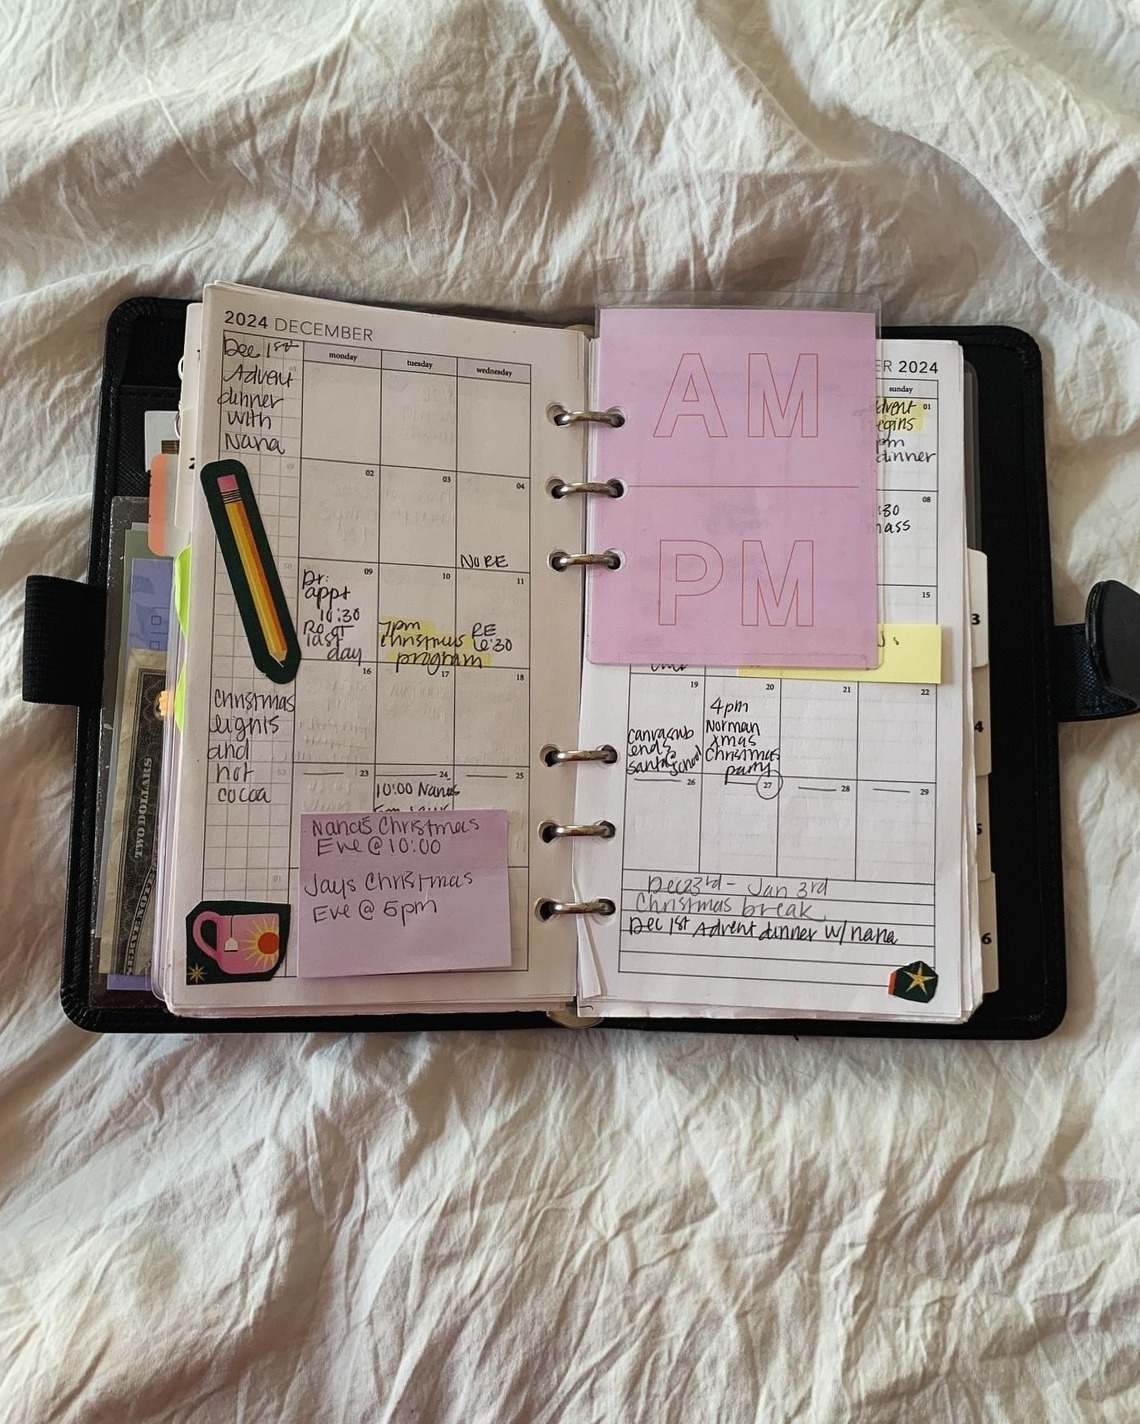 2024 DECEMBER
Dec 1st
Advent
dinner
with
Nana
monday
tuesday
wednesday
02
03
04
NO RE
09
10
11
Dr.
appt
10:30
last
day
7pm
Christmas
program
RE
6:30
16
17
18
Christmas
lights
and
hot
cocoa
23
24
25
10:00 Nanas
Nanas Christmas
Eve @ 10:00
Jays Christmas
Eve @ 5pm
01
TWO DOLLARS
AM
PM
ER 2024
sunday
01
dvent
egins
pm
dinner
08
:30
mass
15
19
20
21
22
ends
santas school
4pm
Norman
xmas
Christmas
party
26
27
28
29
Dec 23rd - Jan 3rd
Christmas break
Dec 1st Advent dinner w/ nana
3
4
5
6